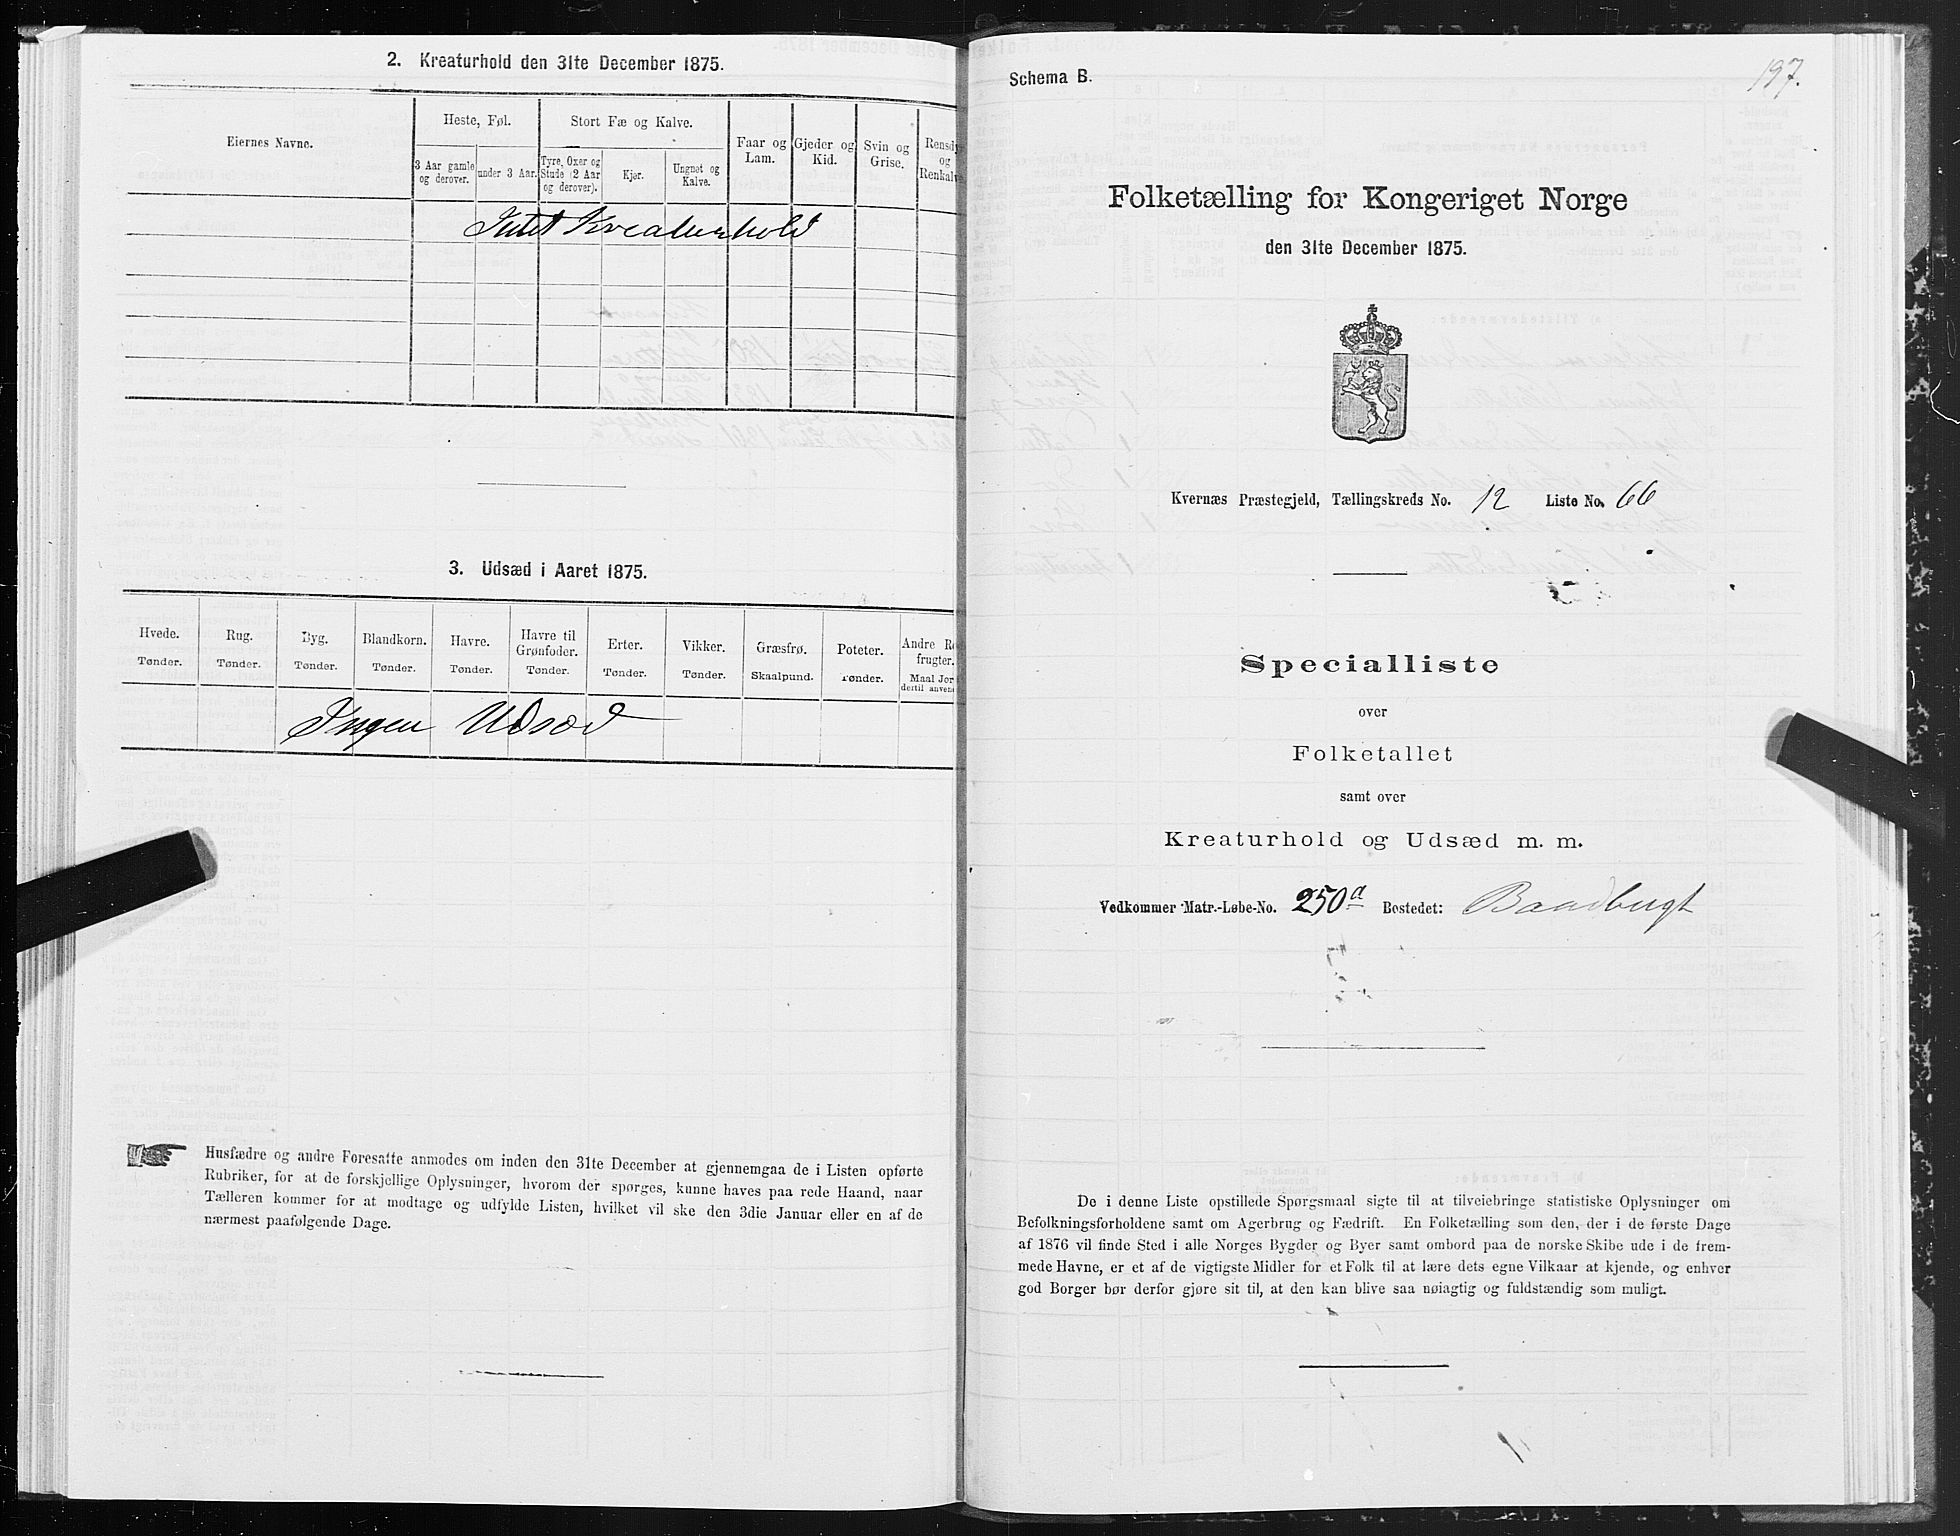 2. Kreaturhold den 31te December 1875.
Eiernes Navne.
Heste, Føl.
Stort Fæ og Kalve.
Faar og Lam.
Gjeder og Kid.
Svin og Grise.
Rensdy
og
Renkalve
3 Aar gamle og derover.
under 3 Aar.
Tyre, Oxer og Stude (2 Aar og derover).
Kjør.
Ungnøt og Kalve.
Intet Kreaturhold
3. Udsæd i Aaret 1875.
Hvede. Rug. Byg. Blandkorn. Havre. Havre til Grønfoder. Erter. Vikker. Græsfrø. Poteter. Andre Ro frugter.
Tønder. Tønder. Tønder. Tønder. Tønder. Tønder. Tønder. Tønder. Skaalpund. Tønder. Maal Jor dertil anven
Ingen Udsæd
Husfædre og andre Foresatte anmodes om inden den 31te December at gjennemgaa de i Listen opførte
Rubriker, for at de forskjellige Oplysninger, hvorom der spørges, kunne haves paa rede Haand, naar
Tælleren kommer for at modtage og udfylde Listen, hvilket vil ske den 3die Januar eller en af de
nærmest paafølgende Dage.
Schema B.
197.
Folketælling for Kongeriget Norge
den 31te December 1875.
Kvernæs Præstegjeld, Tællingskreds No. 12 Liste No. 66
Specialliste
over
Folketallet
samt over
Kreaturhold og Udsæd m. m.
Vedkommer Matr.-Løbe-No. 250a Bostedet: Baadbugt
De i denne Liste opstillede Spørgsmaal sigte til at tilveiebringe statistiske Oplysninger om
Befolkningsforholdene samt om Agerbrug og Fædrift. En Folketælling som den, der i de første Dage
af 1876 vil finde Sted i alle Norges Bygder og Byer samt ombord paa de norske Skibe ude i de frem-
mede Havne, er et af de vigtigste Midler for et Folk til at lære dets egne Vilkaar at kjende, og enhver
god Borger bør derfor gjøre sit til, at den kan blive saa nøiagtig og fuldstændig som muligt.